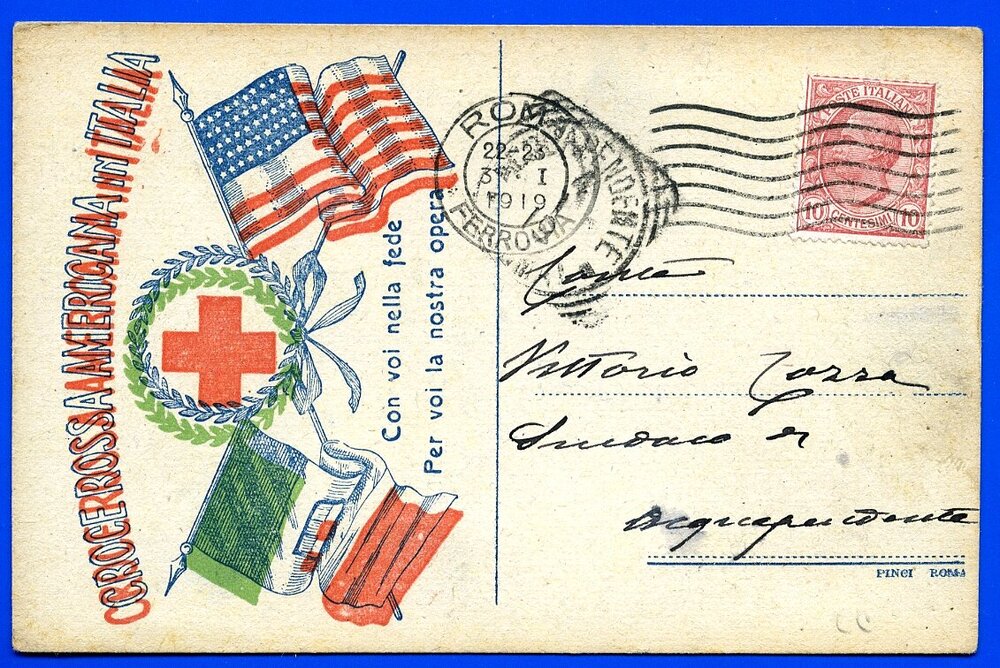 CROCE ROSSA AMERICANA IN ITALIA
Con voi nella fede
Per voi la nostra opera
ROMA
22-23
I
1919
FERROVIA
POSTE ITALIANE
10 CENTESIMI 10
Conte
Vittorio Cozza
Sindaco di
Acquapendente
PINCI ROMA